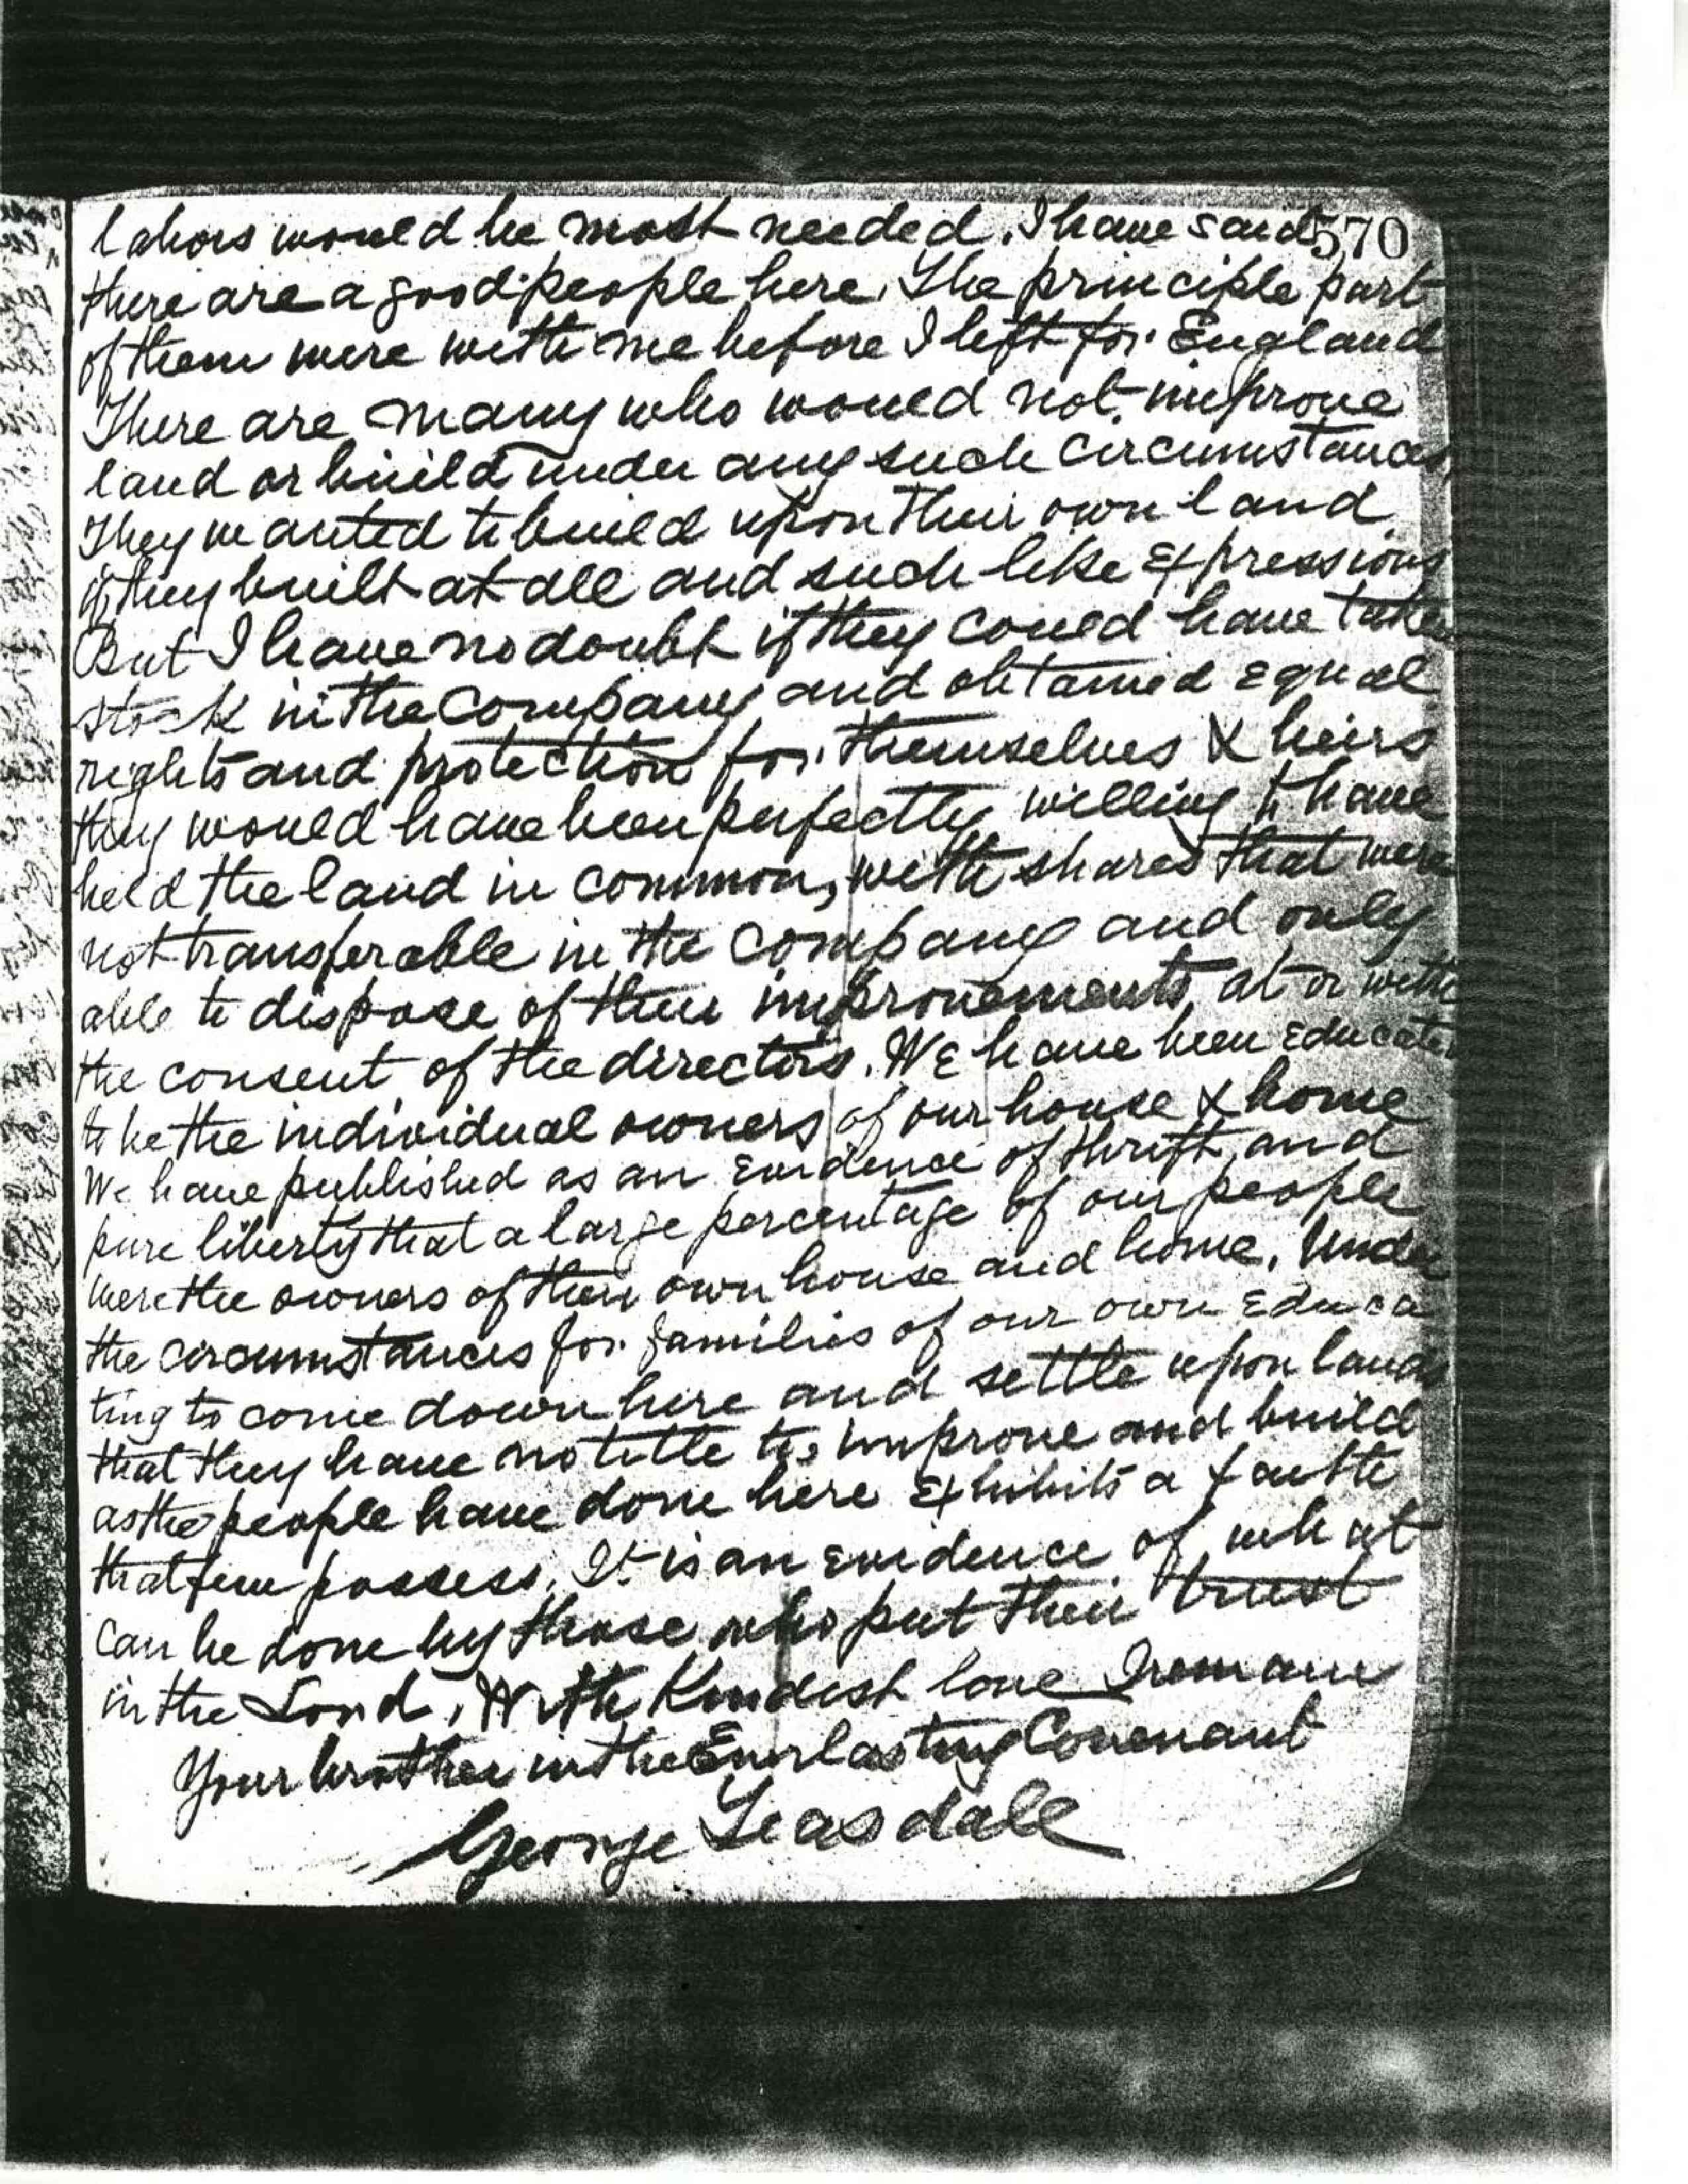 labors would be most needed. I have said 570
there are a good people here. The principle part
of them were with me before I left for England
There are many who would not improve
land or build under any such circumstances,
They wanted to build upon their own land
if they built at all and such like expressions
But I have no doubt if they could have taken
stock in the Company and obtained equal
rights and protection for themselves & heirs
they would have been perfectly willing to have
held the land in common, with shares that were
not transferable in the Company and only
able to dispose of their improvements, at or with
the consent of the directors. We have been educated
to be the individual owners of our house & home
We have published as an evidence of thrift and
pure liberty that a large percentage of our people
were the owners of their own house and home. Under
the circumstances for families of our own educa
ting to come down here and settle upon lands
that they have no title to, improve and build
as the people have done here exhibits a faith
that few possess. It is an evidence of what
can be done by those who put their trust
in the Lord. With Kindest love I remain
Your brother in the Everlasting Covenant
George Teasdale